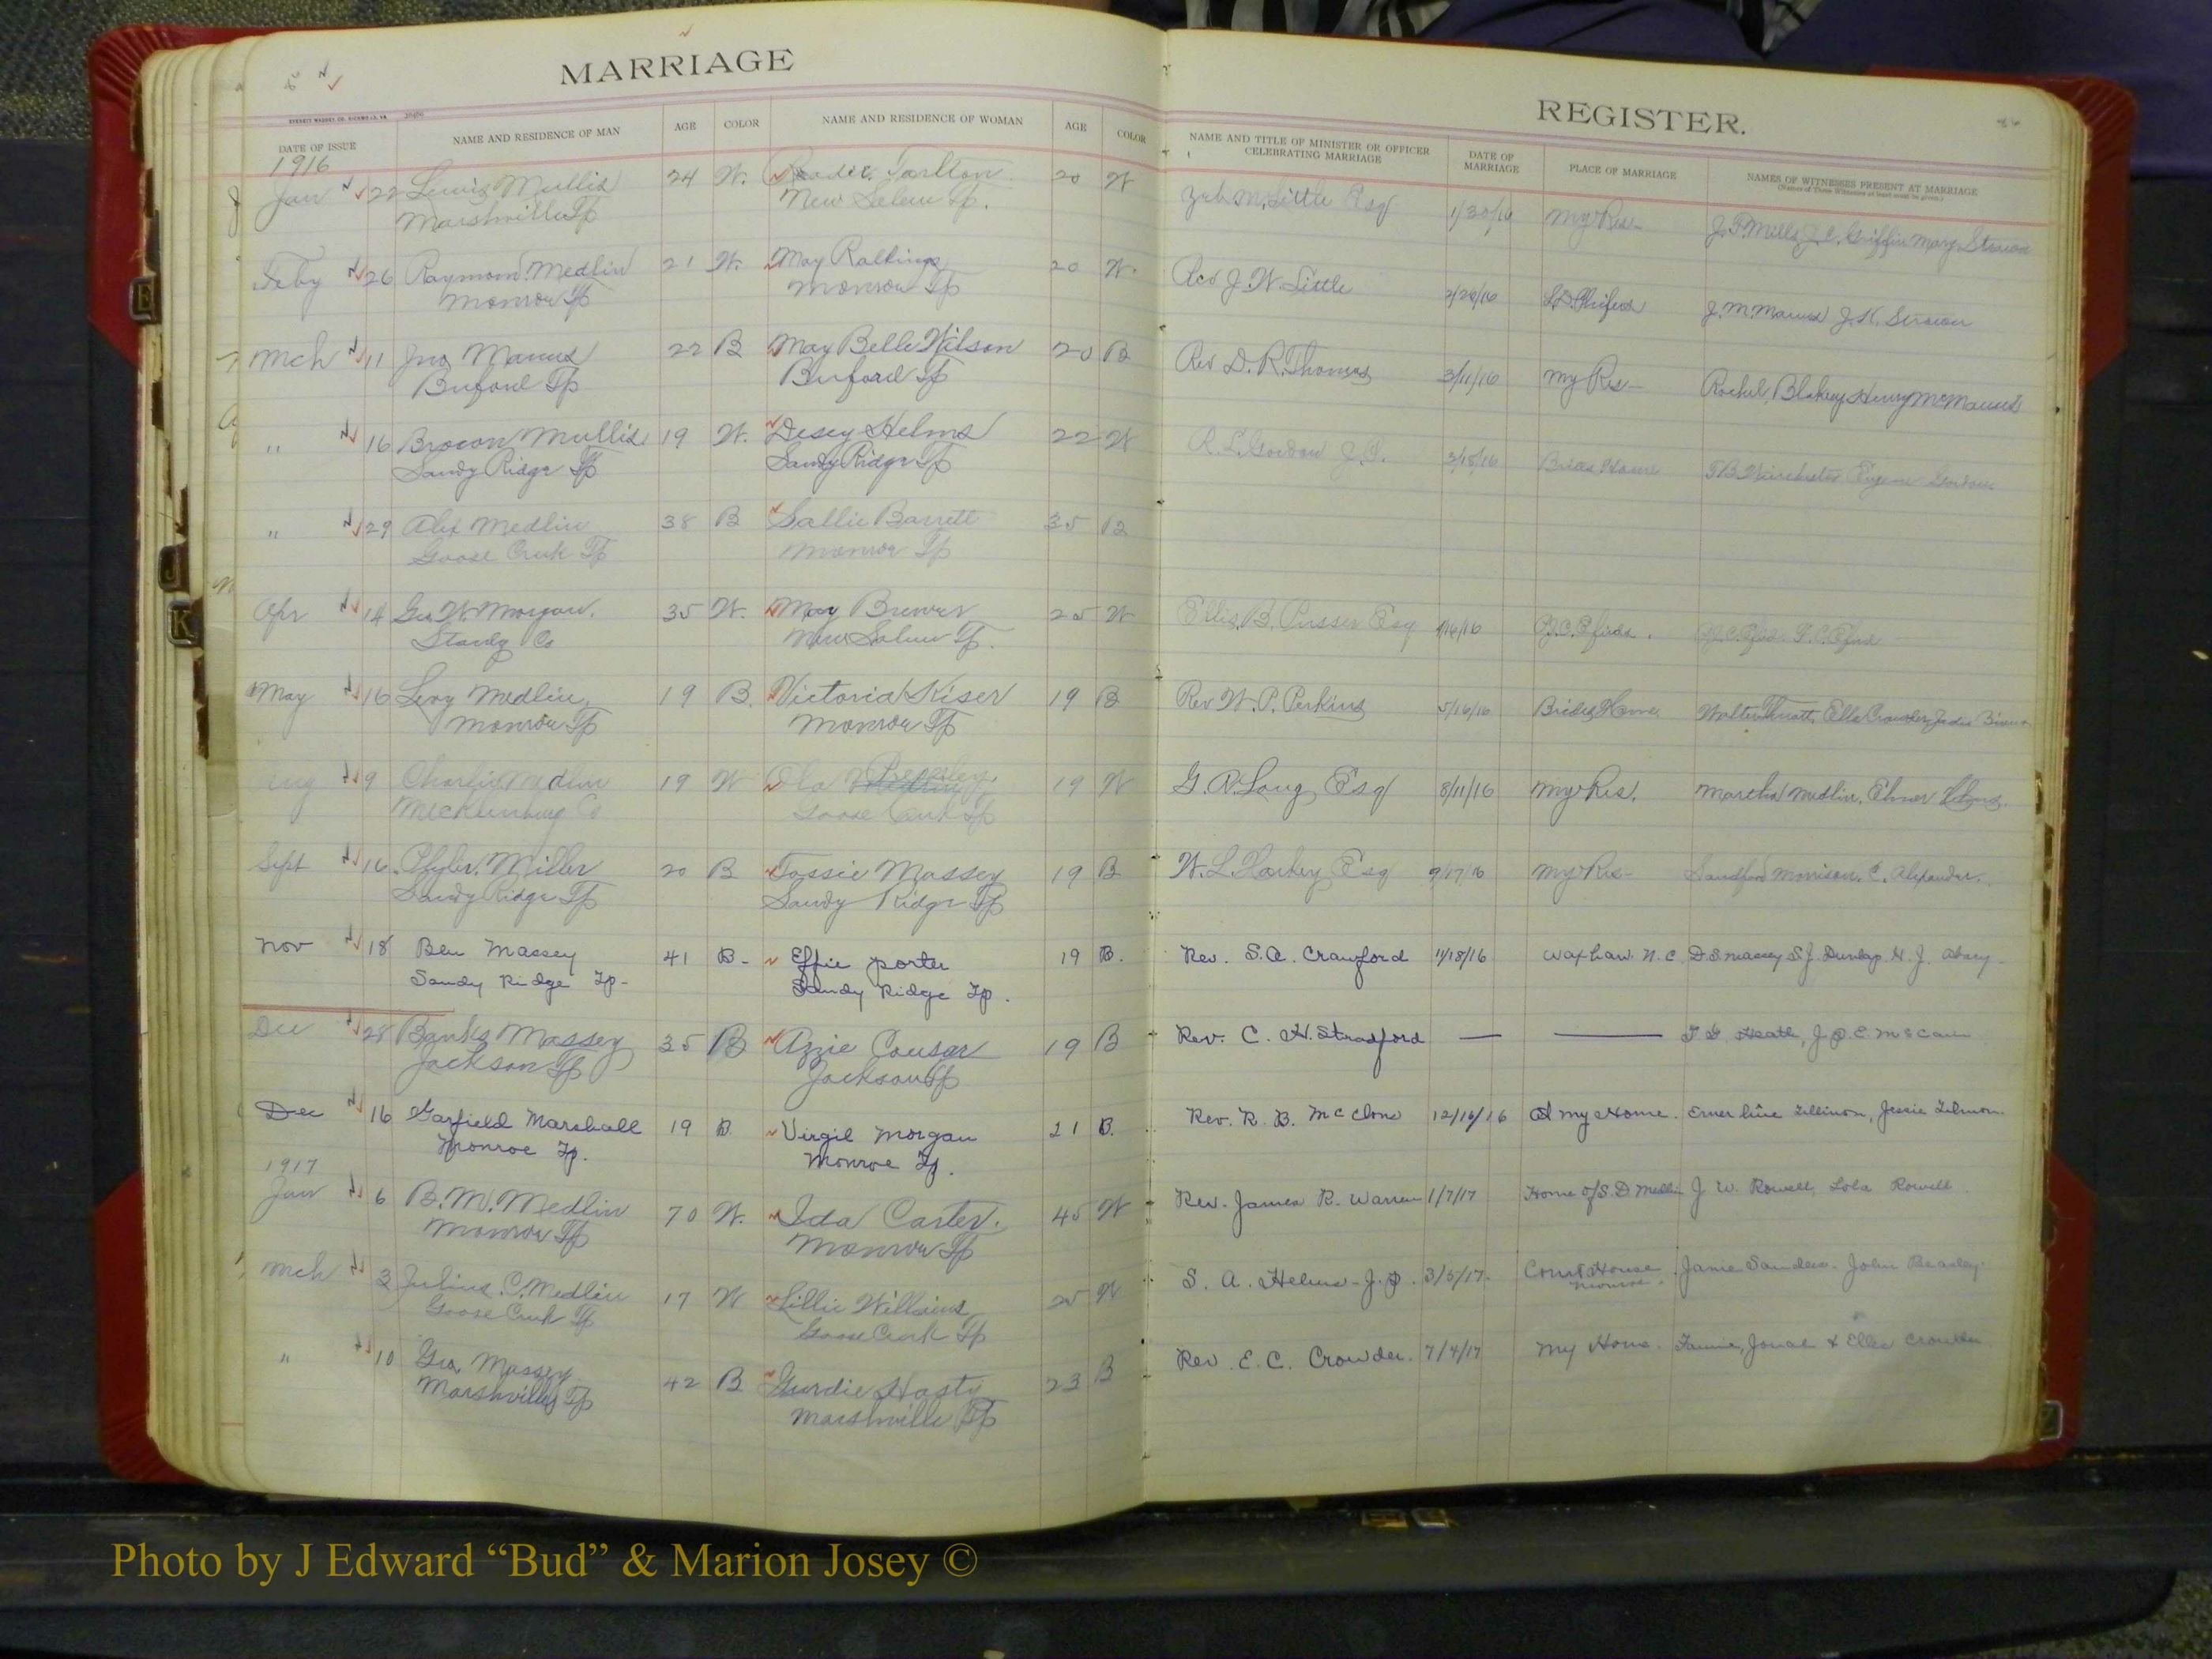 MARRIAGE
DATE OF ISSUE NAME AND RESIDENCE OF MAN AGE COLOR NAME AND RESIDENCE OF WOMAN AGE COLOR
1916
Jan 22 Lewis Mullis 24 W. Tarlton 20 W
Marshville Tp New Salem Tp.
Feby 26 Raymond Medlin 21 W. May Rallings 20 W.
Monroe Tp Monroe Tp
Mch 11 Jno Manus 22 B May Belle Wilson 20 B
Buford Tp Buford Tp
" 16 Brocon Mullis 19 W. Desey Helms 22 W
Sandy Ridge Tp Sandy Ridge Tp
" 29 Alex Medlin 38 B Sallie Barrett 35 B
Goose Creek Tp Monroe Tp
Apr 14 Geo. W. Morgan. 35 W. May Brewer 25 W
Stanly Co New Salem Tp.
May 16 Levy Medlin, 19 B. Victoria Kiser 19 B
Monroe Tp Monroe Tp
Aug 9 Charlie Medlin 19 W Ola 19 W
Mecklenburg Co Goose Creek Tp
Sept 16. Miller 20 B Tossie Massey 19 B
Sandy Ridge Tp Sandy Ridge Tp
Nov 18 Ben Massey 41 B- Effie Porter 19 B.
Sandy Ridge Tp- Sandy Ridge Tp.
Dec 28 Banks Massey 35 B Azzie Cousar 19 B
Jackson Tp Jackson Tp
Dec 16 Garfield Marshall 19 B. Virgil Morgan 21 B.
Monroe Tp. Monroe Tp.
1917
Jan 6 B. M. Medlin 70 W. Ida Carter. 45 W
Monroe Tp Monroe Tp
Mch 3 Julius C. Medlin 17 W Lillie Williams 25 W
Goose Creek Tp Goose Creek Tp
" 10 Geo Massey 42 B Gurdie Hasty 23 B
Marshville Tp Marshville Tp
REGISTER.
NAME AND TITLE OF MINISTER OR OFFICER CELEBRATING MARRIAGE DATE OF MARRIAGE PLACE OF MARRIAGE NAMES OF WITNESSES PRESENT AT MARRIAGE
Zeb M. Little Esq 1/30/16 My Res- J. F. Mills J. C. Griffin Mary
Rev J. W. Little J. M. Manus J. K.
Rev D. R. Thomas 3/11/16 My Res- Rachel Blakeny Henry McManus
R. L. Gordon J. P. Brides Home T B Winchester Eugene Gordon
Ellis. B. Pusser Esq
Rev W. P. Perkins 5/16/16 Brides Home Walter Ella Crowder
G. R. Long Esq 8/11/16 My Res. Martha Medlin. Elmer
W. L. Harkey Esq 9/17/16 My Res- Sandford Morrison. C. Alexander.
Rev. S. A. Crawford 11/18/16 Waxhaw N. C. D S Massey S. J. Dunlap
Rev. C. H. Stradford — — Heath, J. P. E. McCain
Rev. R. B. 12/16/16 At my Home. Jessie
Rev. James R. Warren 1/7/17 Home of S. D. Medlin J W. Rowell, Lola Rowell
S. A. Helms - J. P. 3/5/17. Court House Monroe. Janie Sanders. John Beasley
Rev E. C. Crowder. 7/4/17 My Home. Fannie, & Ella Crowder
Photo by J Edward “Bud” & Marion Josey ©